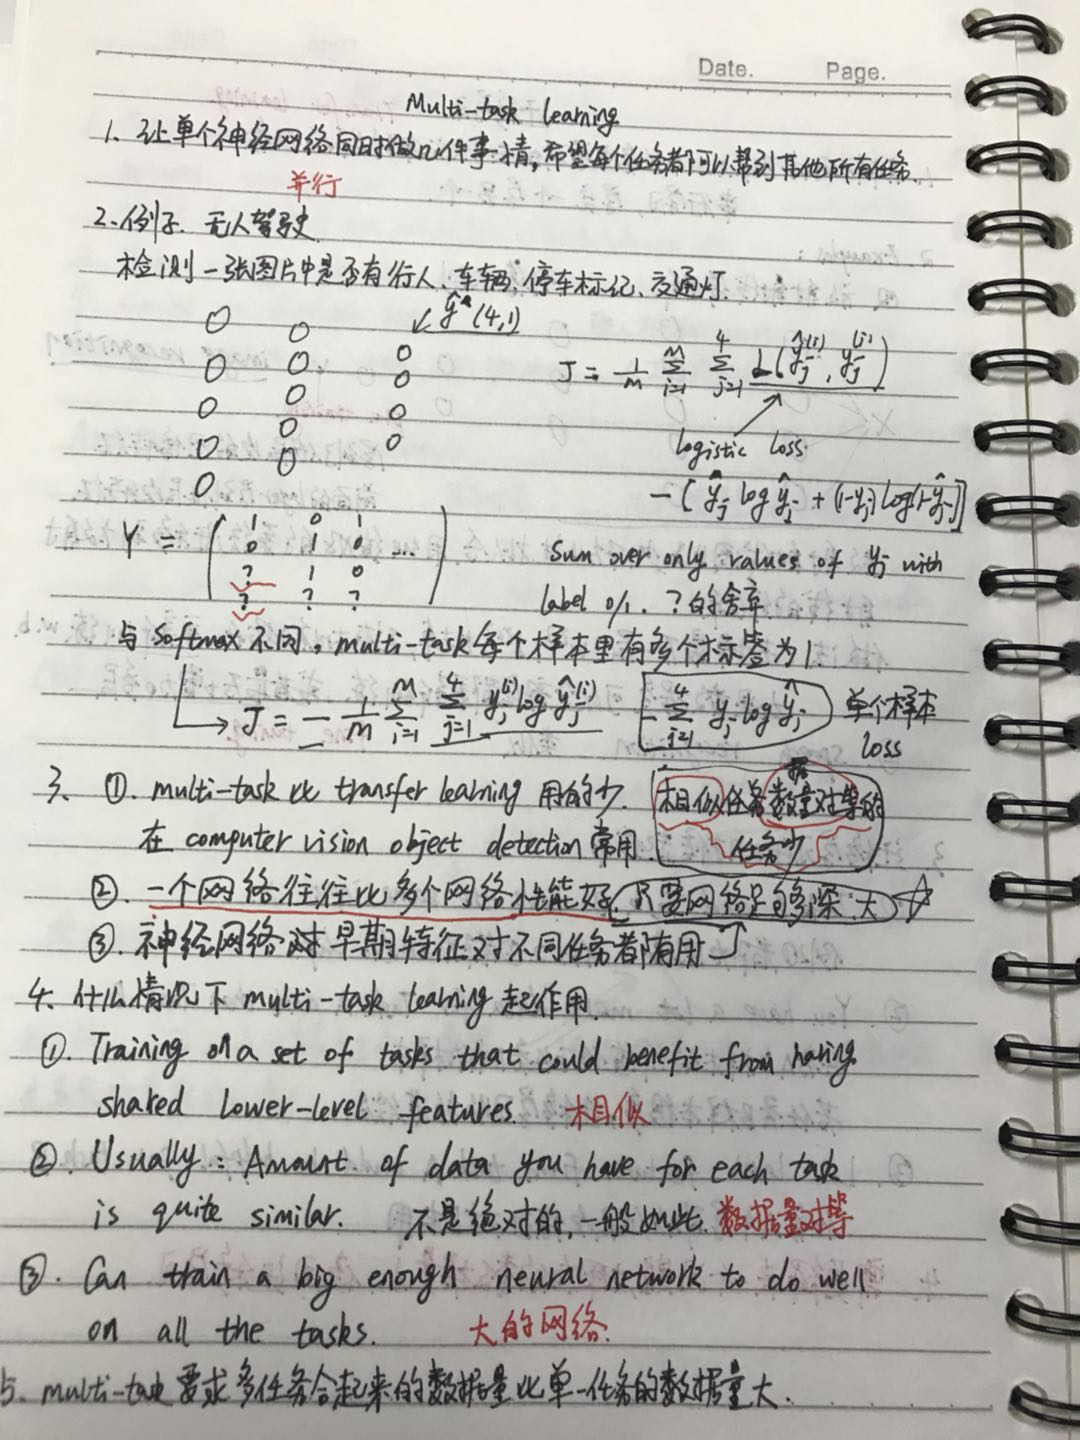 Date. Page.
Multi-task learning
1. 让单个神经网络同时做几件事情,希望每个任务都可以帮到其他所有任务.
并行
2.例子. 无人驾驶
检测一张图片中是否有行人、车辆、停车标记、交通灯.
ŷ (4,1)
J = 1/m ∑_{i=1}^{m} ∑_{j=1}^{4} L(ŷ_j^{(i)}, y_j^{(i)})
logistic loss.
- [ ŷ_j log ŷ_j + (1-y_j) log(1-ŷ_j)]
Y = ( 1 0 1
0 1 0 ...
? 1 0
? ? ? )
Sum over only values of y_j with
label 0/1. ?的舍弃
与 Softmax 不同, multi-task 每个样本里有多个标签为1.
J = - 1/m ∑_{i=1}^{m} ∑_{j=1}^{4} y_j^{(i)} log ŷ_j^{(i)} - ∑_{j=1}^{4} y_j log ŷ_j 单个样本
loss
3. ①. multi-task 比 transfer learning 用的少. 相似任务数据量对等的
在 computer vision object detection 常用. 任务少
②. 一个网络往往比多个网络性能好 只要网络足够深、大 ☆
③. 神经网络对早期特征对不同任务都有用
4. 什么情况下 multi-task learning 起作用.
①. Training on a set of tasks that could benefit from having
shared lower-level features. 相似
②. Usually: Amount of data you have for each task
is quite similar. 不是绝对的,一般如此. 数据量对等
③. Can train a big enough neural network to do well
on all the tasks. 大的网络.
5. multi-task 要求多任务合起来的数据量比单一任务的数据量大.